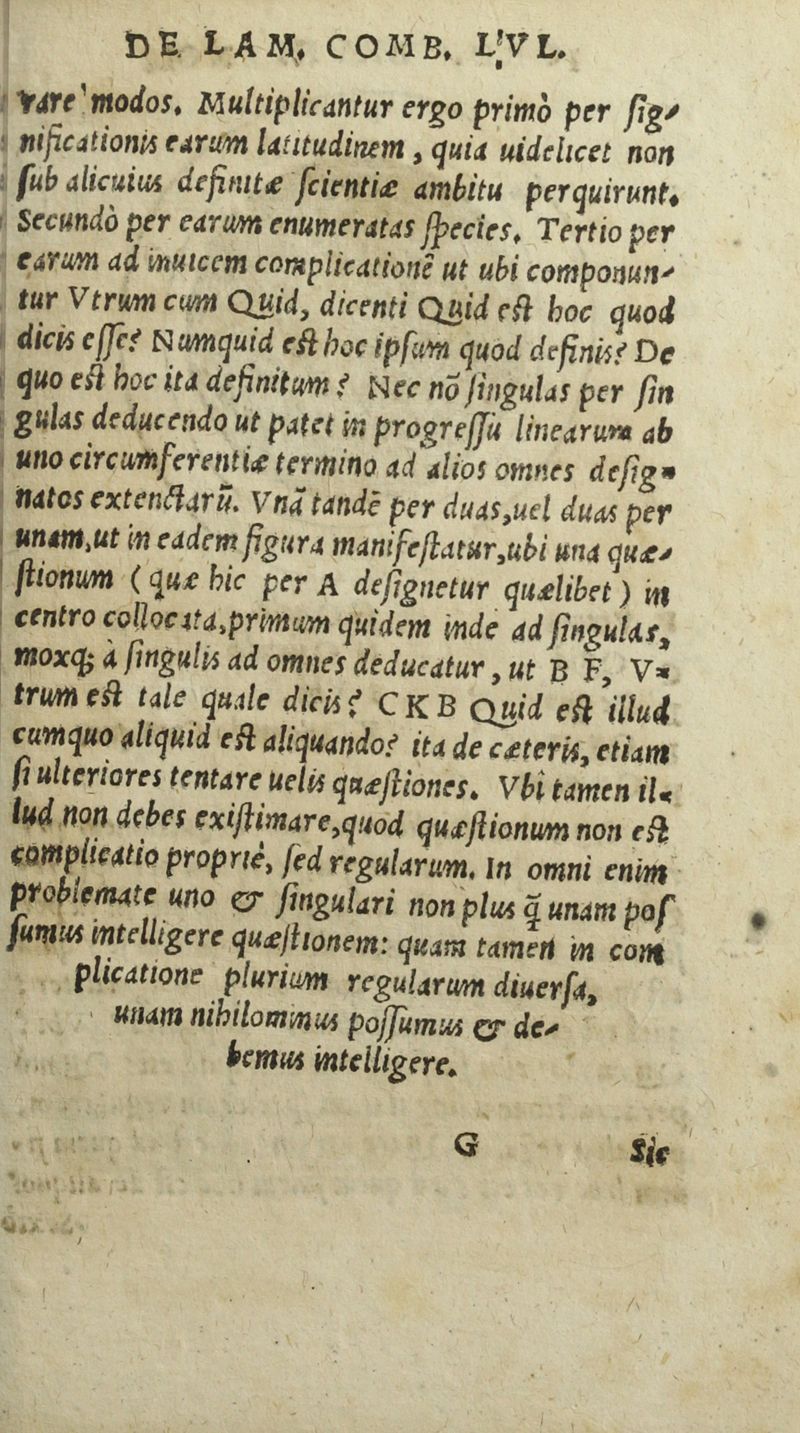 DE LAM. COMB. LVL.
rare modos. Multiplicantur ergo primò per ſig-
nificationis earum latitudinem, quia uidelicet non
ſub alicuius definitæ ſcientiæ ambitu perquirunt.
Secundò per earum enumeratas ſpecies. Tertio per
earum ad inuicem complicationē ut ubi componun-
tur Vtrum cum Quid, dicenti Quid eſt hoc quod
dicis eſſe? Numquid eſt hoc ipſum quod definis? De
quo eſt hoc ita definitum? Nec nō ſingulas per ſin
gulas deducendo ut patet in progreſſu linearum ab
uno circumferentiæ termino ad alios omnes deſig-
natos extenſtarū. Vnā tandē per duas, uel duas per
unam, ut in eadem figura manifeſtatur, ubi una quæ-
ſtionum (quæ hic per A deſignetur quælibet) in
centro collocata, primum quidem inde ad ſingulas,
moxq; à ſingulis ad omnes deducatur, ut B F, V-
trum eſt tale quale dicis? C K B Quid eſt illud
cumquo aliquid eſt aliquando? ita de cæteris, etiam
ſi ulteriores tentare uelis quæſtiones. Vbi tamen il-
lud non debes exiſtimare, quod quæſtionum non eſt
complicatio propriè, ſed regularum. In omni enim
problemate uno & ſingulari non plus q̄ unam poſ
ſumus intelligere quæſtionem: quam tamen in com
plicatione plurium regularum diuerſa,
unam nihilominus poſſumus & de-
bemus intelligere.
G Sic